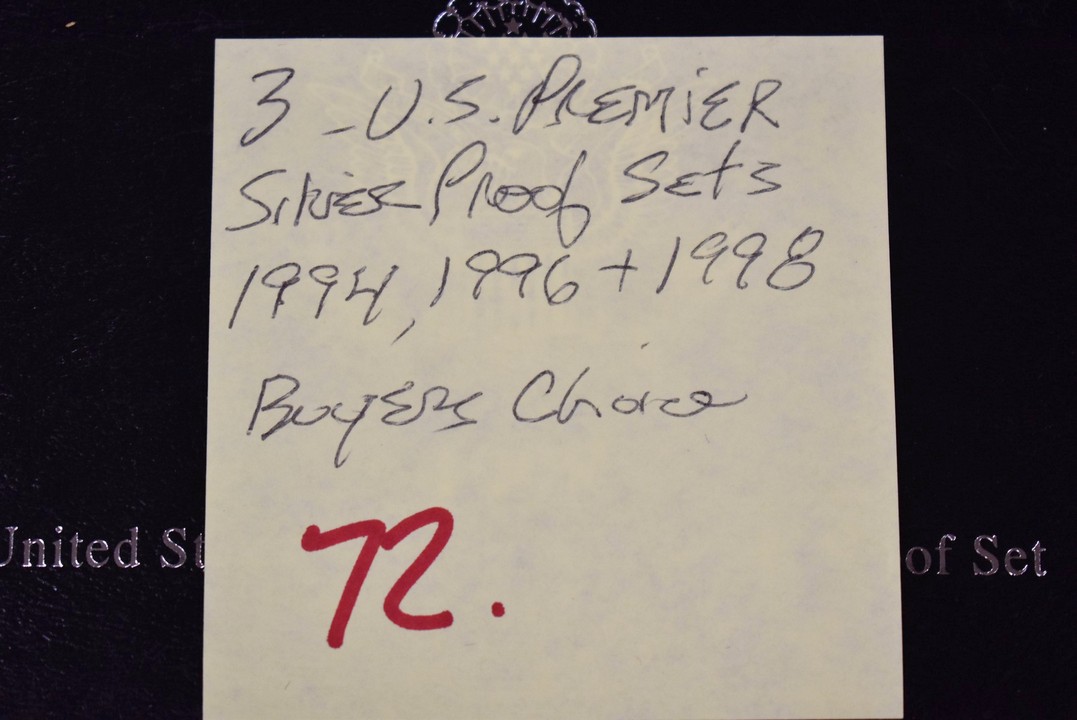 3 - U.S. PREMiER
SilvER Proof Sets
1994, 1996 + 1998
BuyERs Choice
United St
of Set
72.